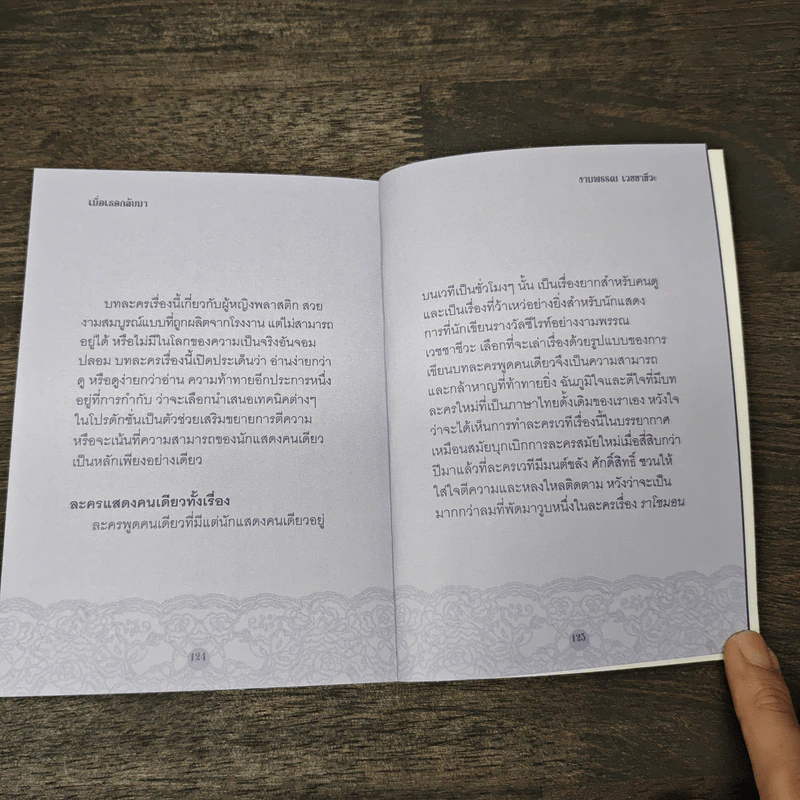 เมื่อเธอกลับมา
บทละครเรื่องนี้เกี่ยวกับผู้หญิงพลาสติก สวย
งามสมบูรณ์แบบที่ถูกผลิตจากโรงงาน แต่ไม่สามารถ
อยู่ได้ หรือไม่มีในโลกของความเป็นจริงอันจอม
ปลอม บทละครเรื่องนี้เปิดประเด็นว่า อ่านง่ายกว่า
ดู หรือดูง่ายกว่าอ่าน ความท้าทายอีกประการหนึ่ง
อยู่ที่การกำกับ ว่าจะเลือกนำเสนอเทคนิคต่างๆ
ในโปรดักชั่นเป็นตัวช่วยเสริมขยายการตีความ
หรือจะเน้นที่ความสามารถของนักแสดงคนเดียว
เป็นหลักเพียงอย่างเดียว
ละครแสดงคนเดียวทั้งเรื่อง
ละครพูดคนเดียวที่มีแต่นักแสดงคนเดียวอยู่
124
งามพรรณ เวชชาชีวะ
บนเวทีเป็นชั่วโมงๆ นั้น เป็นเรื่องยากสำหรับคนดู
และเป็นเรื่องที่ว้าเหว่อย่างยิ่งสำหรับนักแสดง
การที่นักเขียนรางวัลซีไรท์อย่างงามพรรณ
เวชชาชีวะ เลือกที่จะเล่าเรื่องด้วยรูปแบบของการ
เขียนบทละครพูดคนเดียวจึงเป็นความสามารถ
และกล้าหาญที่ท้าทายยิ่ง ฉันภูมิใจและดีใจที่มีบท
ละครใหม่ที่เป็นภาษาไทยดั้งเดิมของเราเอง หวังใจ
ว่าจะได้เห็นการทำละครเวทีเรื่องนี้ในบรรยากาศ
เหมือนสมัยบุกเบิกการละครสมัยใหม่เมื่อสี่สิบกว่า
ปีมาแล้วที่ละครเวทีมีมนต์ขลัง ศักดิ์สิทธิ์ ชวนให้
ใส่ใจตีความและหลงใหลติดตาม หวังว่าจะเป็น
มากกว่าลมที่พัดมาวูบหนึ่งในละครเรื่อง ราโชมอน
125